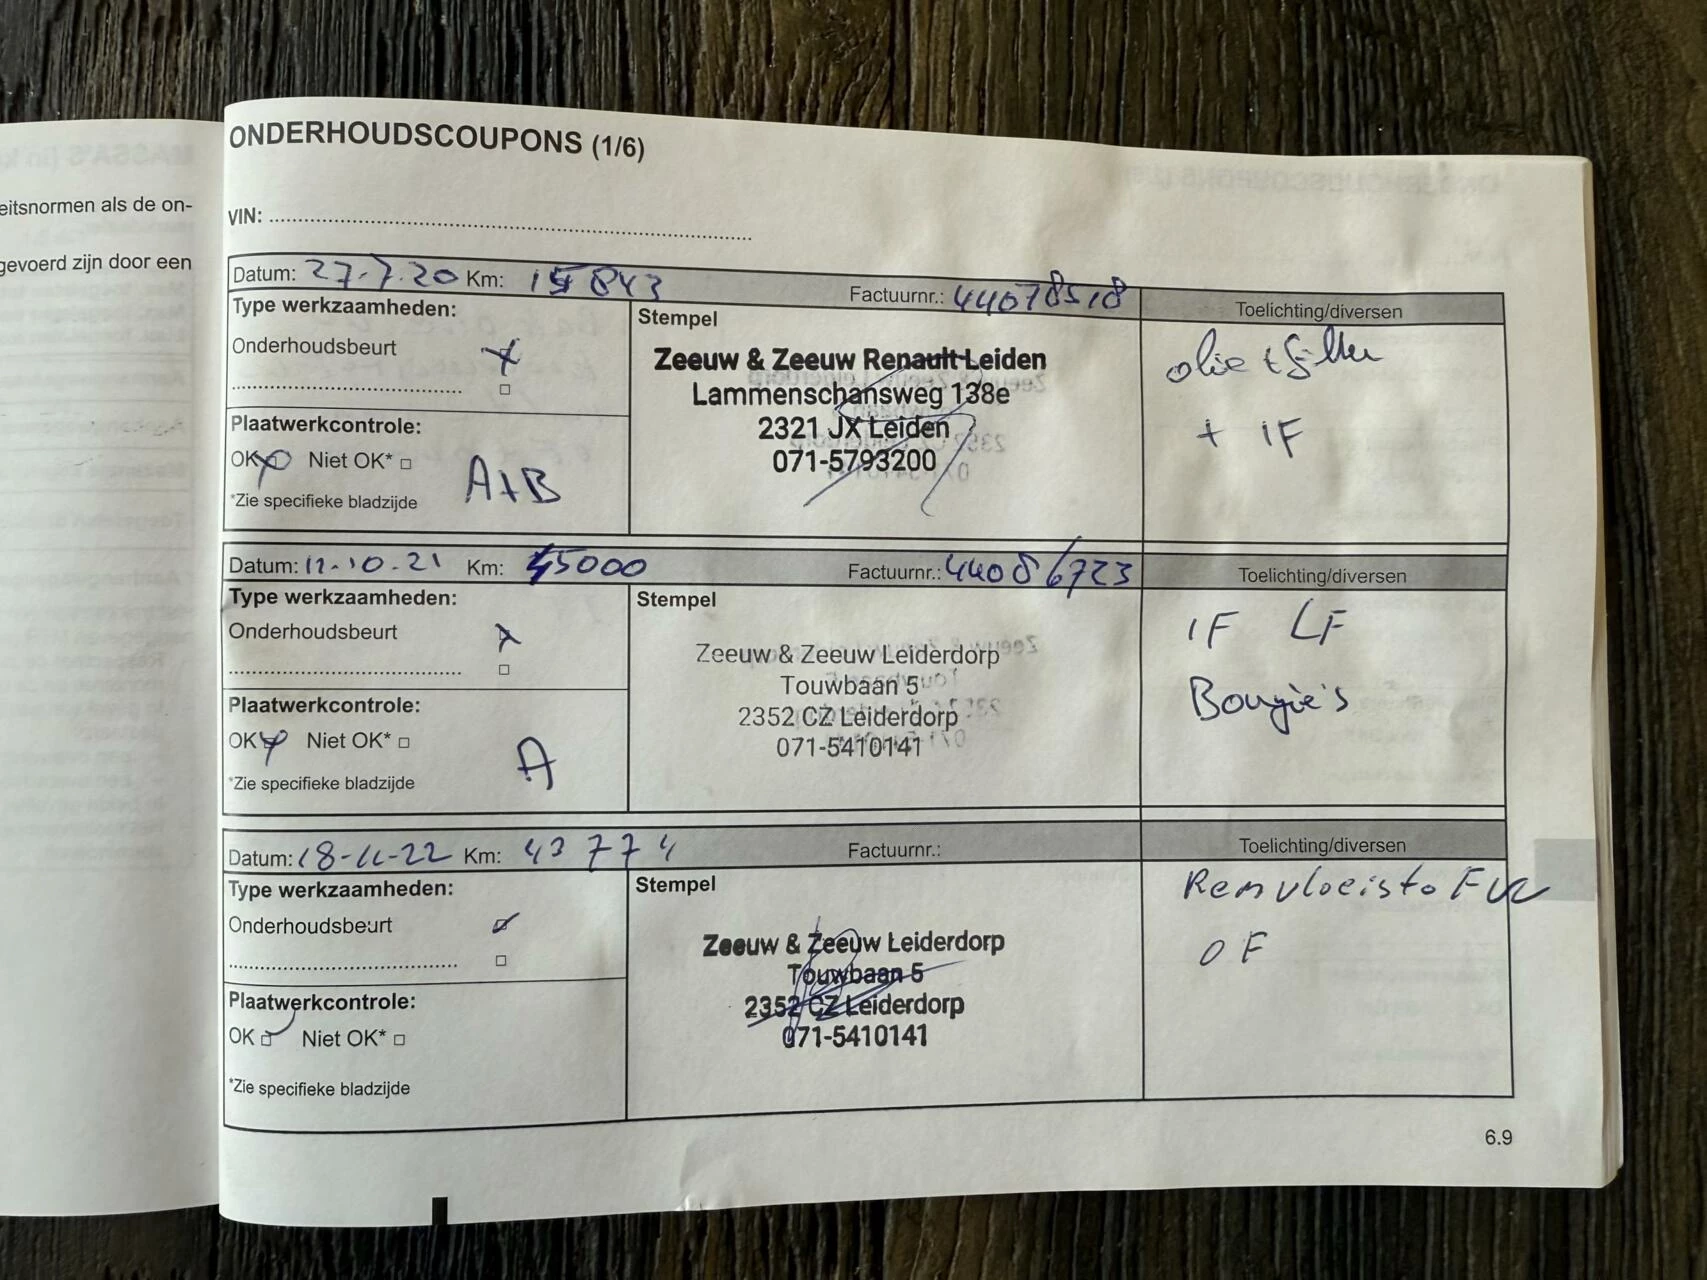 eitsnormen als de on-
gevoerd zijn door een
ONDERHOUDSCOUPONS (1/6)
VIN:
Datum: 27-7-20 Km: 15843 Factuurnr.: 44078518 Toelichting/diversen
Type werkzaamheden:
Stempel
Onderhoudsbeurt
Plaatwerkcontrole:
OK Niet OK*
*Zie specifieke bladzijde
A+B
Zeeuw & Zeeuw Renault Leiden
Lammenschansweg 138e
2321 JX Leiden
071-5793200
olie + filter
+ IF
Datum: 11-10-21 Km: 45000 Factuurnr.: 44086723 Toelichting/diversen
Type werkzaamheden:
Stempel
Onderhoudsbeurt
Plaatwerkcontrole:
OK Niet OK*
*Zie specifieke bladzijde
A
Zeeuw & Zeeuw Leiderdorp
Touwbaan 5
2352 CZ Leiderdorp
071-5410141
IF LF
Bougie's
Datum: 18-11-22 Km: 43774 Factuurnr.: Toelichting/diversen
Type werkzaamheden:
Stempel
Onderhoudsbeurt
Plaatwerkcontrole:
OK Niet OK*
*Zie specifieke bladzijde
Zeeuw & Zeeuw Leiderdorp
Touwbaan 5
2352 CZ Leiderdorp
071-5410141
Remvloeistof
OF
6.9